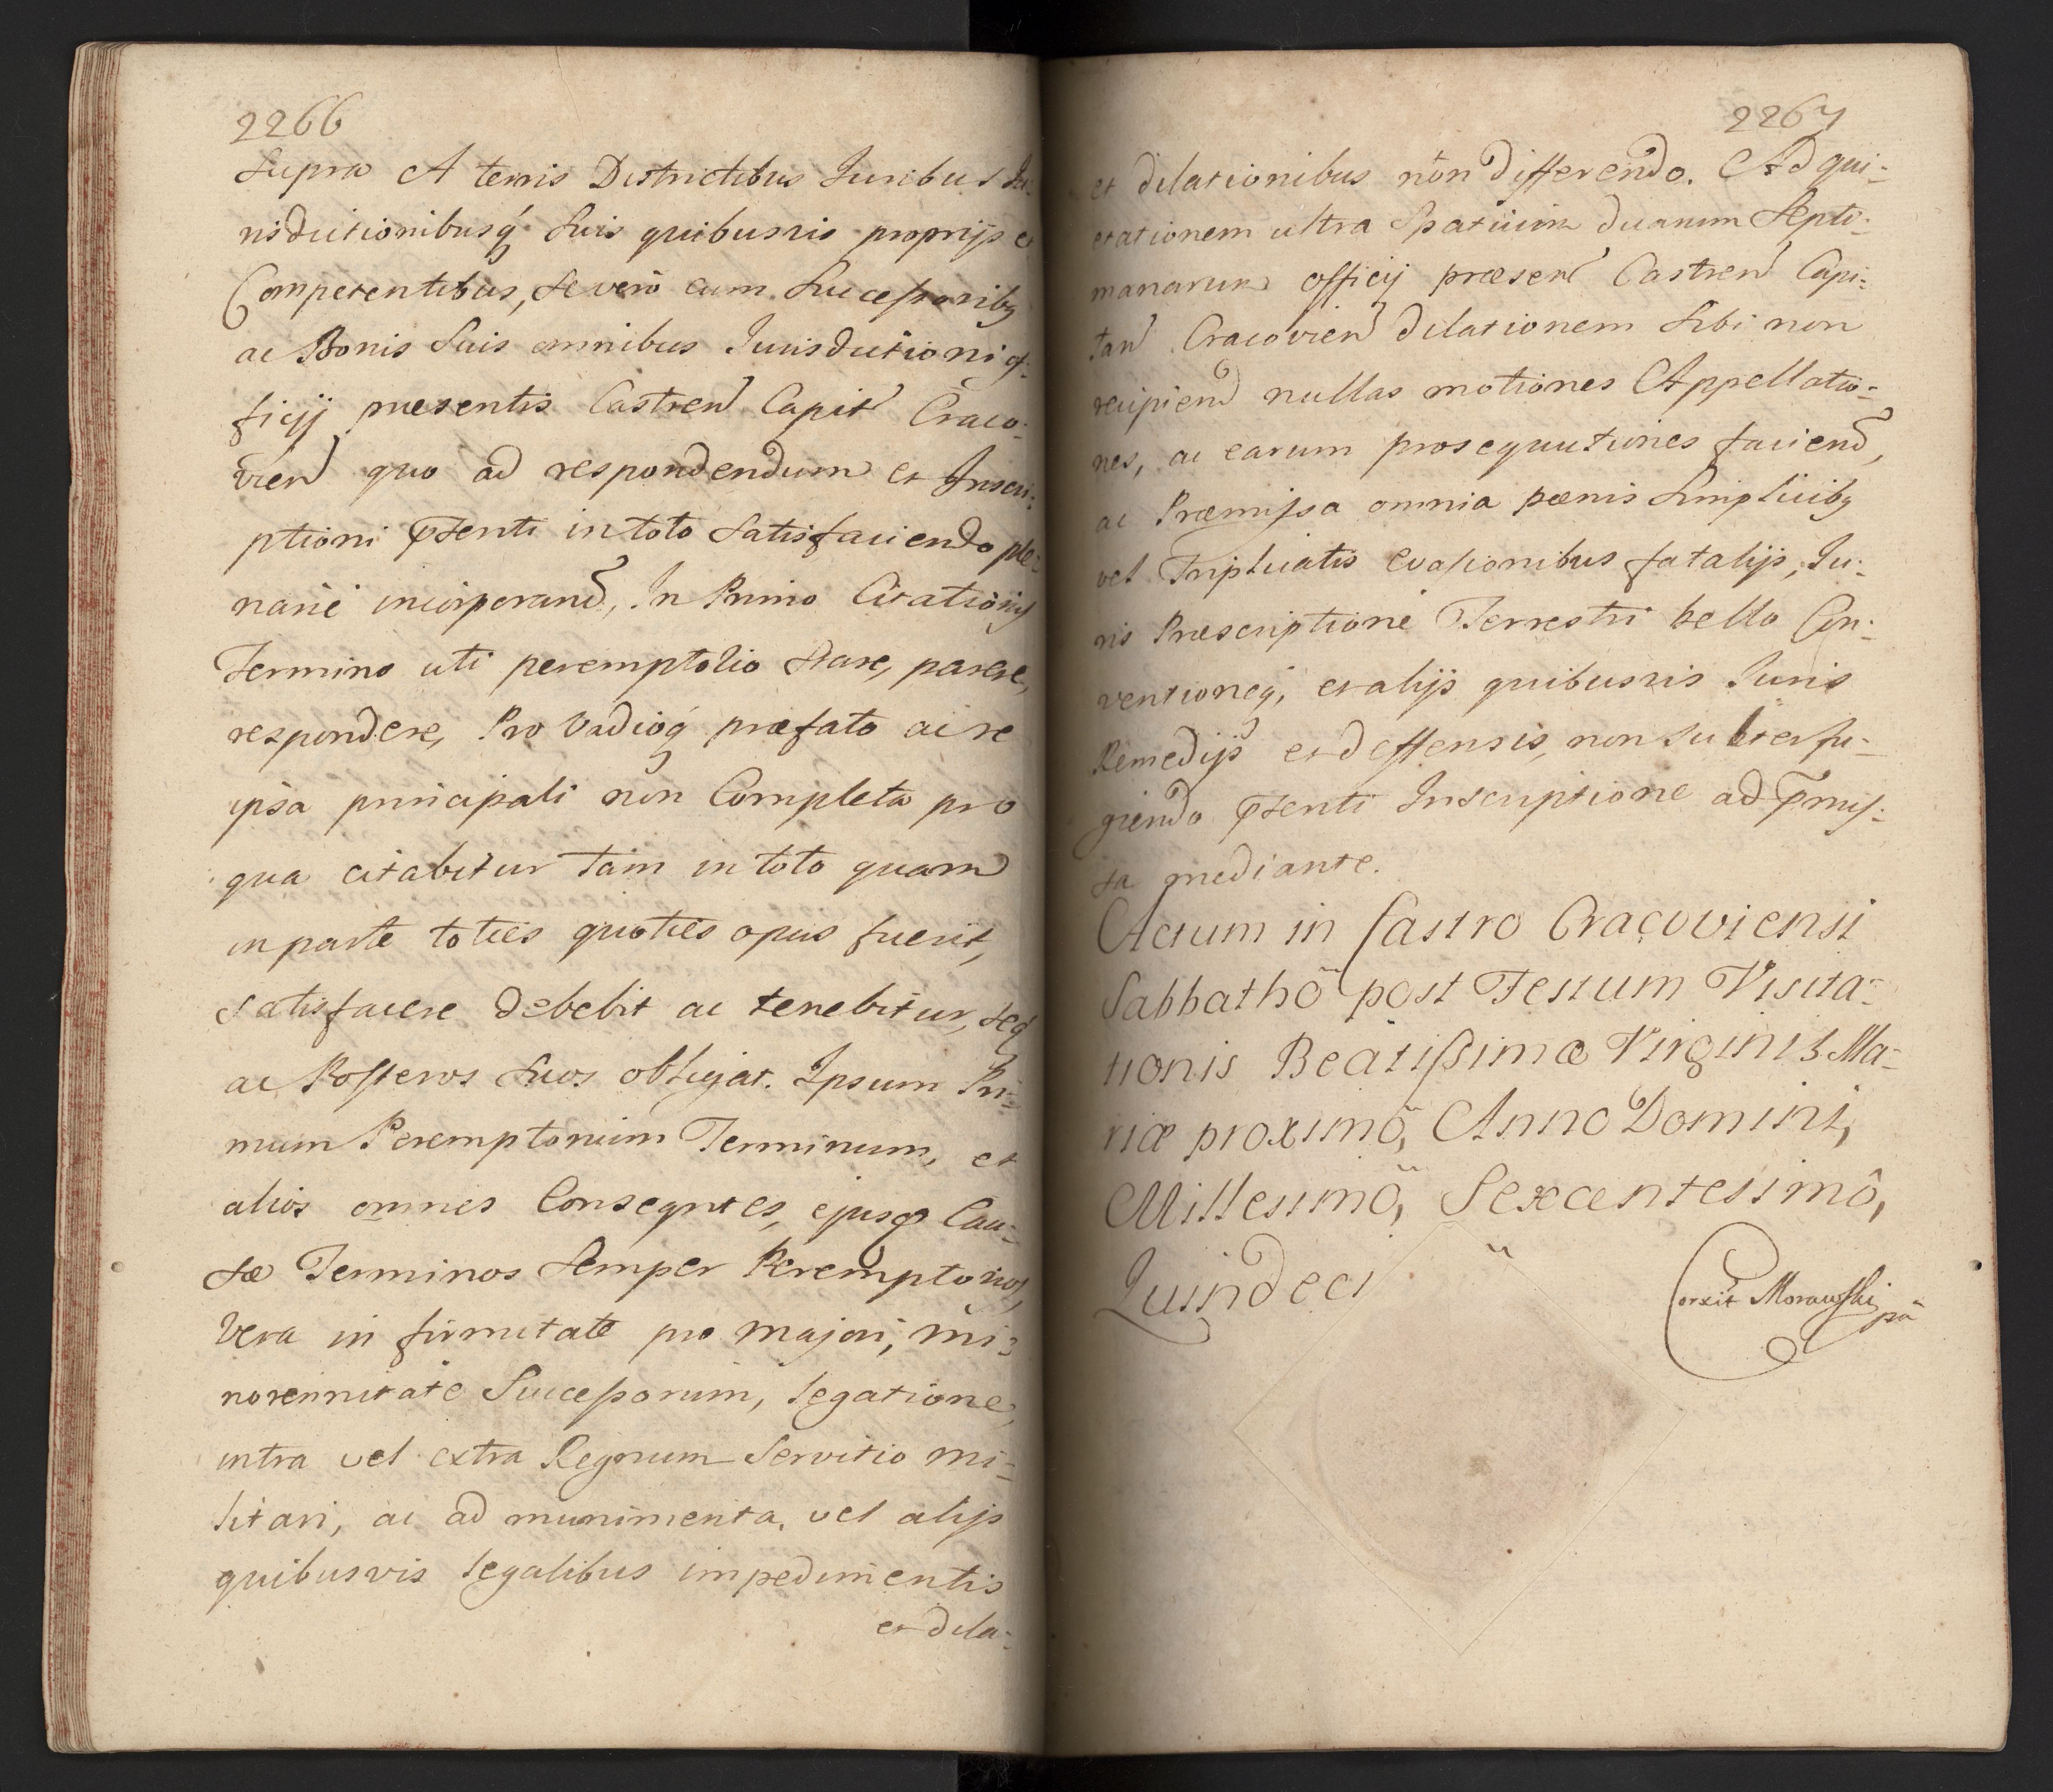 2266
Supra A terris Districtibus Juribus Ju-
risdictionibusq́ Suis quibusvis proprijs et
Competentibus, se verò cum Successoribq
ac Bonis Suis omnibus Jurisdictioni of-
ficij præsentis Castren Capit Craco-
vien quo ad respondendum et Inscri-
ptioni pſenti in toto Satisfaciendo ple-
nariè incorporand, In Primo Citationis
Termino uti peremptorio Stare, parere,
respondere, Pro Vadioq́ præfato ac re
ipsa principali non Completa pro
qua citabitur tam in toto quam
in parte toties quoties opus fuerit,
satisfacere debebit ac tenebitur, seq́
ac Posteros Suos obligat. Ipsum Pri-
mum Peremptorium Terminum, et
alios omnes Conseqntes, ejusq Cau-
sæ Terminos Semper Peremptorios,
Vera in firmitate pro majori, mi-
norennitate Successorum, legatione,
intra vel extra Regnum Servitio mi-
litari, ac ad munimenta, vel alijs
quibusvis legalibus impedimentis
et dila-
2267
et dilationibus non differendo. Ad qui-
etationem ultra Spatium duarum Septi-
manarum officij præsen Castren Capi-
tan Cracovien dilationem Sibi non
recipiend nullas motiones Appellatio-
nes, ac earum prosequutiones faciend,
ac Præmissa omnia pœnis Simplicibq
vel Triplicatis evasionibus fatalijs, Ju-
ris Præscriptione Terrestri bello Con-
ventioneq́, et alijs quibusvis Juris
Remedijs et deffensis, non subterfu-
giendo pſenti Inscriptione ad pmis-
sa mediante.
Actum in Castro Cracoviensi
Sabbathô post Festum Visita-
tionis Beatissimæ Virginis Ma-
riæ proximô, Anno Domini,
Millesimô, Sexcentesimô,
Quindeci
Corxit Morawski